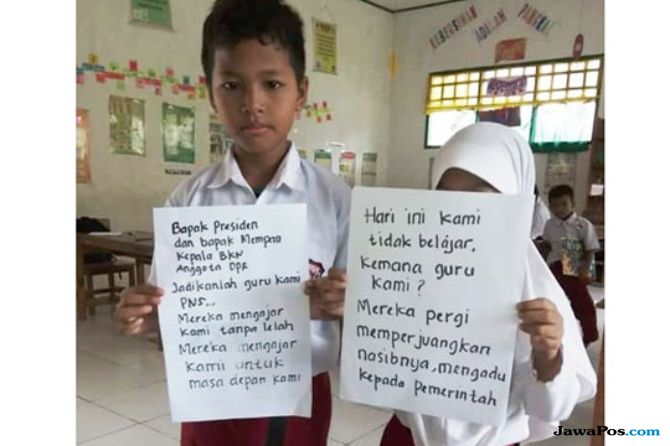 KEBERSIHAN
ADALAH
PANGKAL
Bapak Presiden
dan bapak Menpan
Kepala BKN
Anggota DPR
Jadikanlah guru kami
PNS...
Mereka mengajar
kami tanpa lelah
Mereka mengajar
kami untuk
masa depan kami
Hari ini kami
tidak belajar,
kemana guru
kami?
Mereka pergi
memperjuangkan
nasibnya, mengadu
kepada pemerintah
JawaPos.com